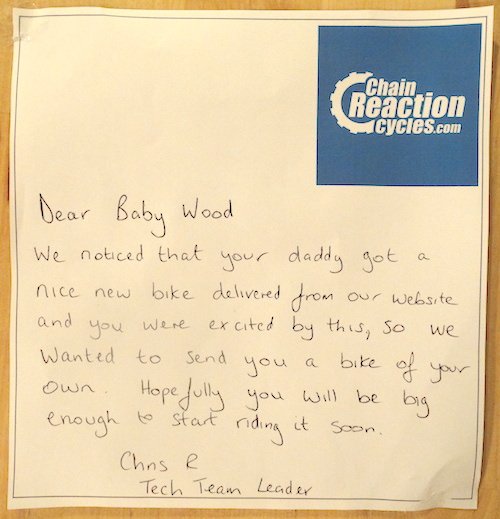 Chain
Reaction
Cycles.com
Dear Baby Wood
We noticed that your daddy got a
nice new bike delivered from our website
and you were excited by this, so we
wanted to send you a bike of your
own. Hopefully you will be big
enough to start riding it soon.
Chris R
Tech Team Leader